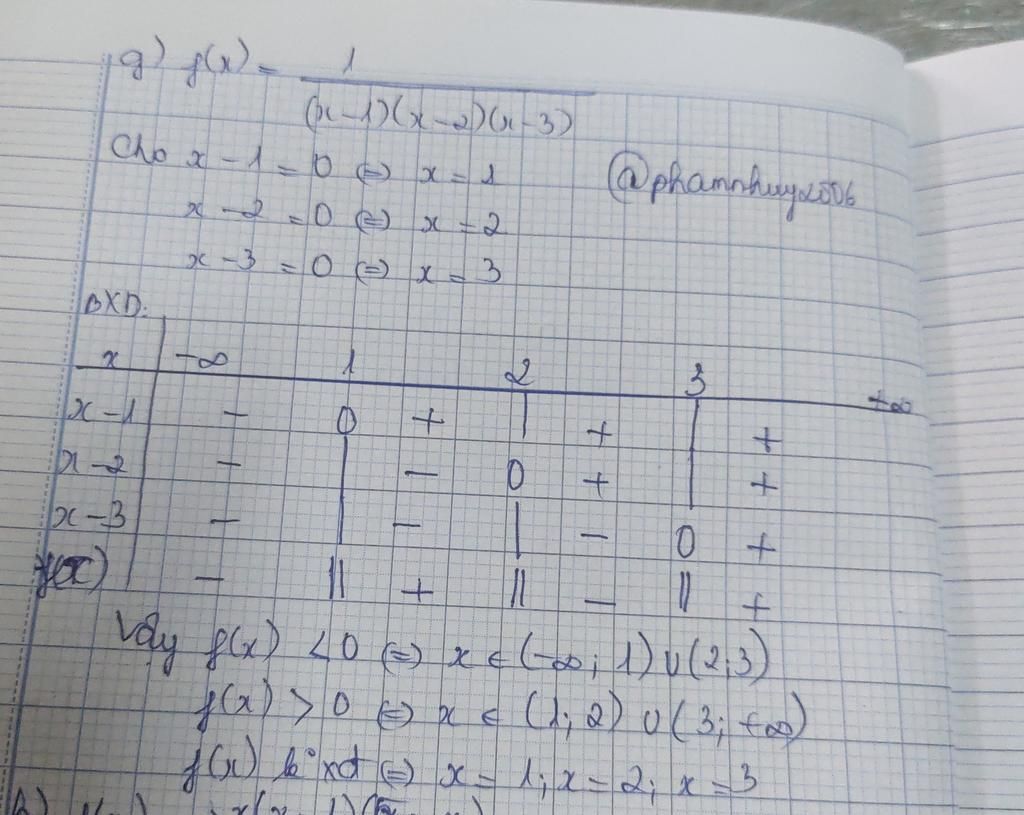 g) f(x) = 1
(x-1)(x-2)(x-3)
Cho x - 1 = 0 ⇔ x = 1
@phamnhuy2006
x - 2 = 0 ⇔ x = 2
x - 3 = 0 ⇔ x = 3
BXD:
x -∞ 1 2 3 +∞
x-1 - 0 + | + | +
x-2 - | - 0 + | +
x-3 - | - | - 0 +
f(x) - || + || - || +
Vậy f(x) < 0 ⇔ x ∈ (-∞; 1) ∪ (2; 3)
f(x) > 0 ⇔ x ∈ (1; 2) ∪ (3; +∞)
f(x) k° xđ ⇔ x = 1; x = 2; x = 3